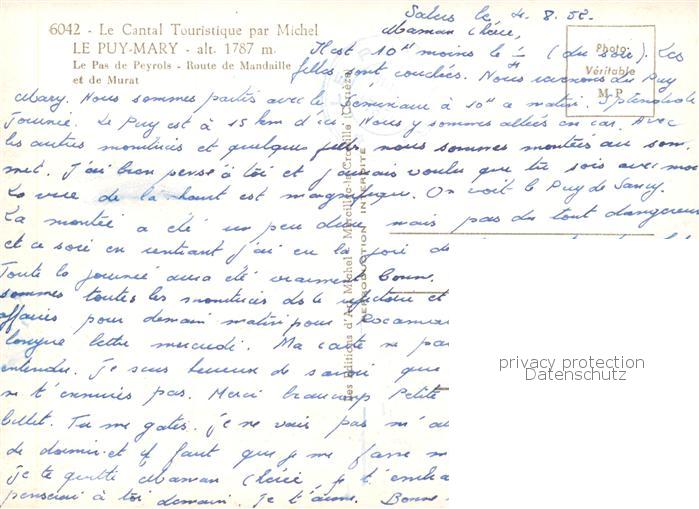 6042 - Le Cantal Touristique par Michel
LE PUY-MARY - alt. 1787 m.
Le Pas de Peyrols - Route de Mandaille
et de Murat
Photo
Véritable
M-P
Les Editions d'Art Michel
REPRODUCTION INTERDITE
Salers le 4.8.58.
Maman chérie,
Il est 10H moins le 1/4 (du soir). Les
filles sont couchées. Nous revenons du Puy
Mary. Nous sommes partis avec le séminaire à 10H ce matin. Splendide
Journée. Le Puy est à 15 km d'ici. Nous y sommes allées en car. Avec
les autres monitrices et quelques filles nous sommes montées au som-
met. J'ai bien pensé à toi et j'aurais voulu que tu sois avec moi
La vue de là haut est magnifique. On voit le Puy de Sancy.
La montée a été un peu dure mais pas du tout dangereuse
et ce soir en rentrant j'ai eu la joie de
Toute la journée aura été vraiment bonne.
sommes toutes les monitrices ds le réfectoire et
affaires pour demain matin pour Rocamad
longue lettre mercredi. Ma carte ne par
entendu. Je suis heureuse de savoir que
ne t'ennuies pas. Merci beaucoup Petite
billet. Tu me gates. je ne vais pas m'
de dormir et il faut que je me
je te quitte Maman Chérie, je t'embra
penserai à toi demain. Je t'aime. Bonne
privacy protection
Datenschutz